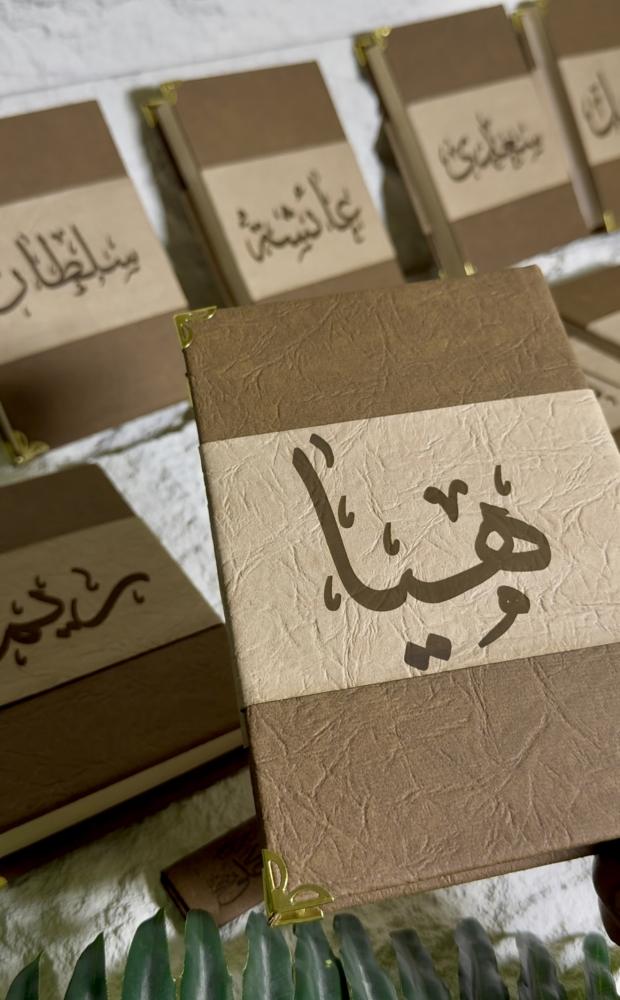 سلطان
عائشة
سعيدي
هيا
ريم